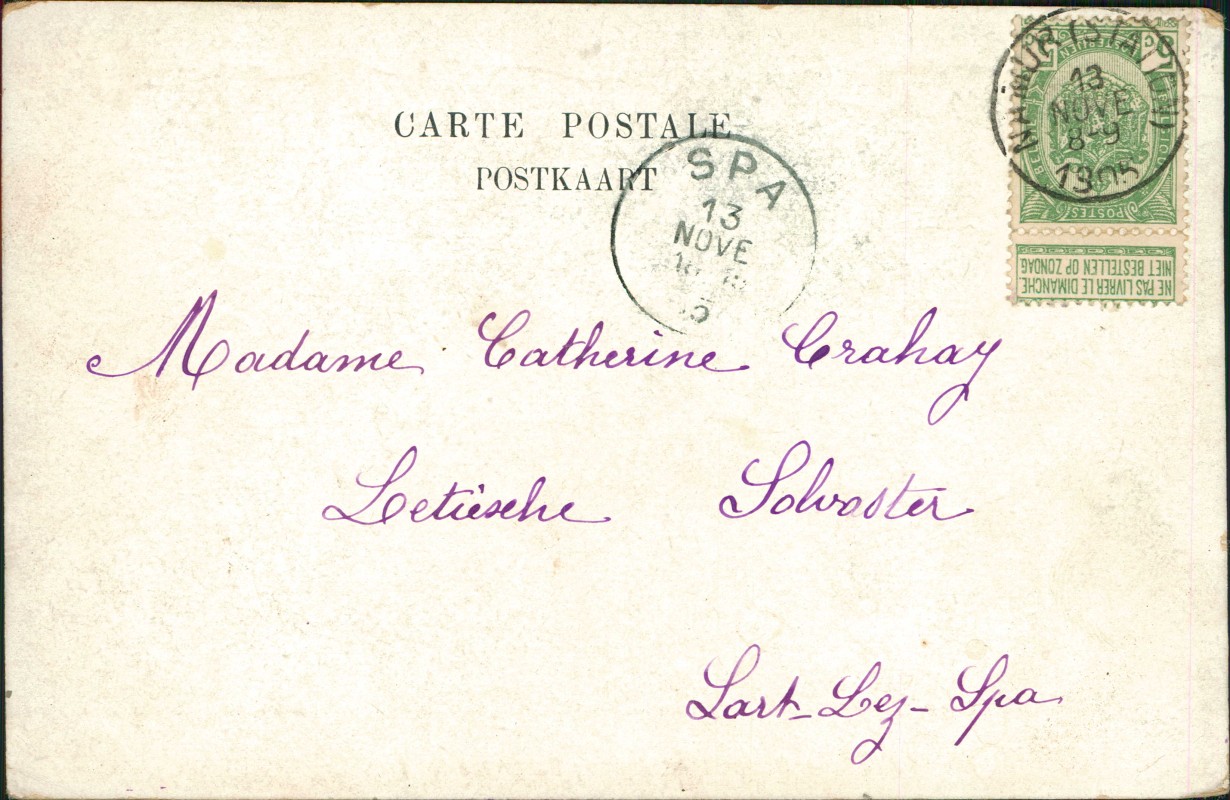 CARTE POSTALE
POSTKAART
NAMUR (STATION)
13
NOVE
8-9
1905
POSTES
NE PAS LIVRER LE DIMANCHE
NIET BESTELLEN OP ZONDAG
SPA
13
NOVE
5
Madame Catherine Crahay
Letiesche Solvaster
Sart-Lez-Spa